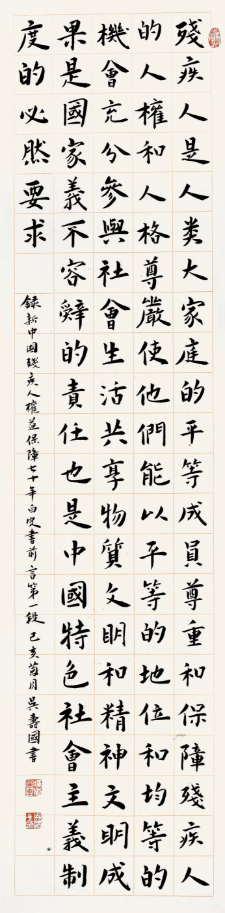 殘疾人是人类大家庭的平等成員尊重和保障殘疾人
的人權和人格尊嚴使他們能以平等的地位和均等的
機會充分參與社會生活共享物質文明和精神文明成
果是國家義不容辭的責任也是中國特色社會主義制
度的必然要求
錄新中國殘疾人權益保障七十年白皮書前言第一段 己亥菊月 吳壽國書